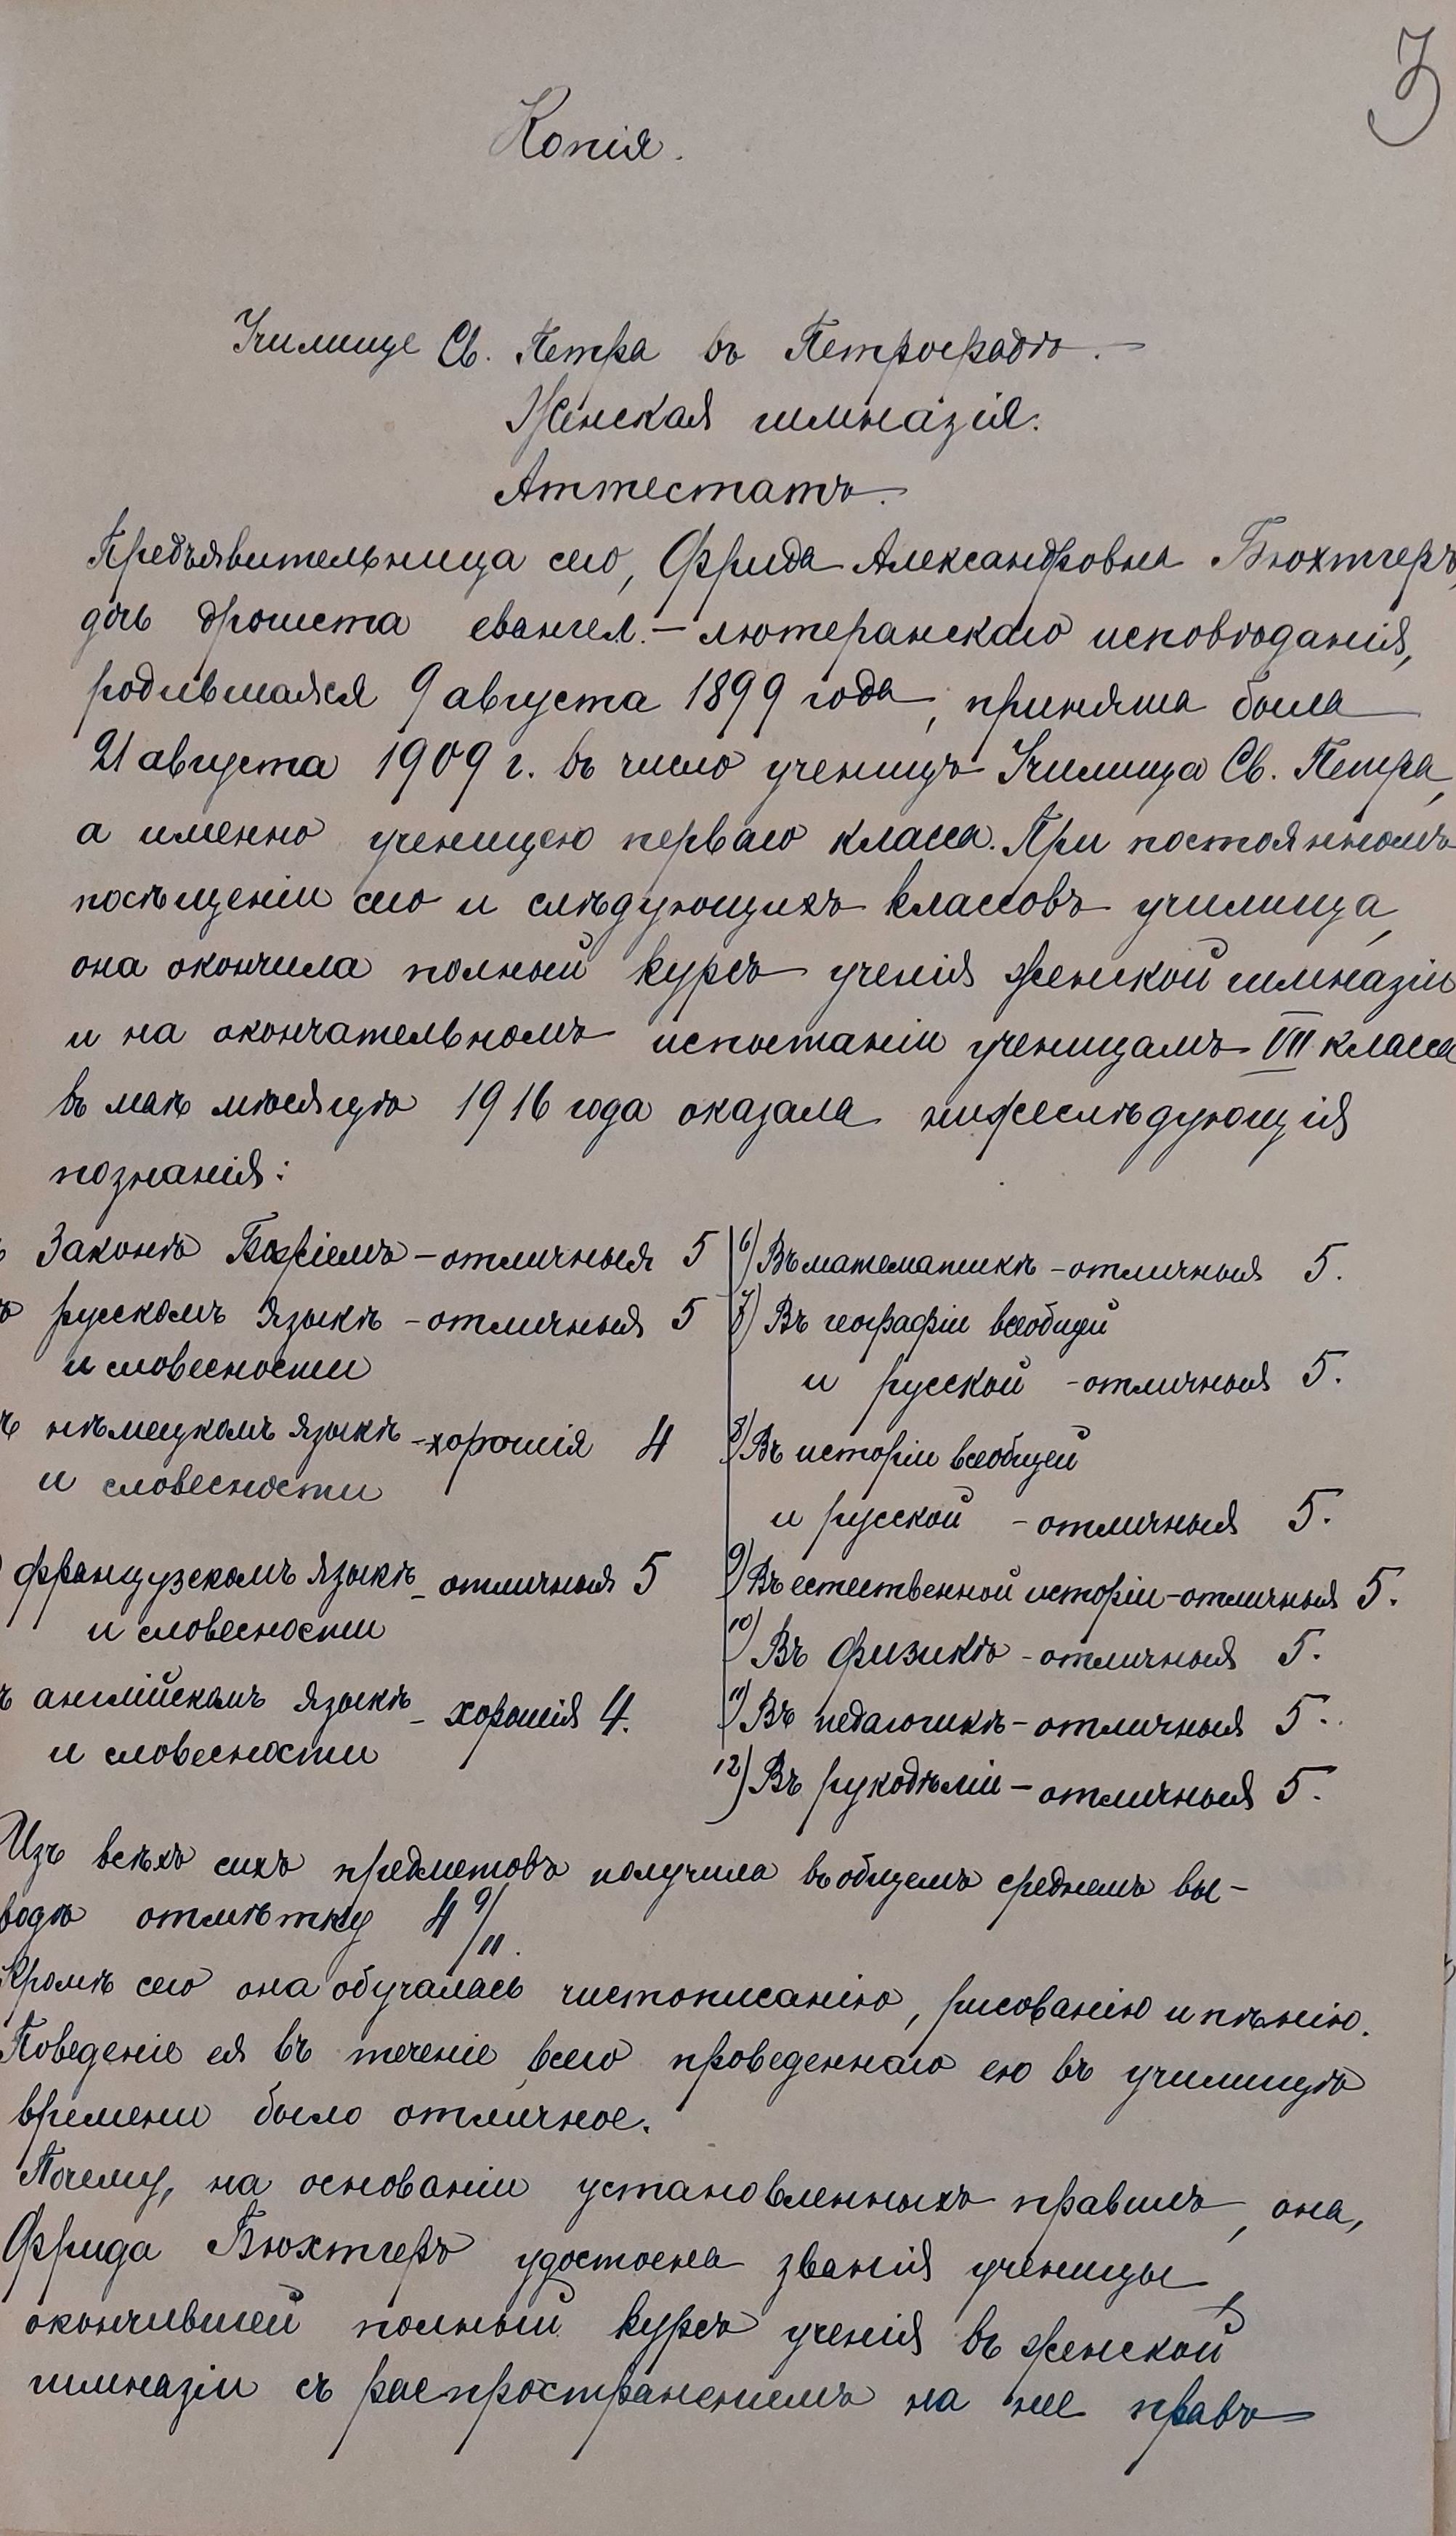 3
Копія.
Училище Св. Петра въ Петроградѣ.
Женская гимназія.
Аттестатъ.
Предъявительница сего, Фрида Александровна Бюхтгеръ,
дочь дрогиста евангел.-лютеранскаго исповѣданія,
родившаяся 9 августа 1899 года, принята была
21 августа 1909 г. въ число ученицъ Училища Св. Петра,
а именно ученицею перваго класса. При постоянномъ
посѣщеніи сего и слѣдующихъ классовъ училища,
она окончила полный курсъ ученія женской гимназіи
и на окончательномъ испытаніи ученицамъ VII класса
въ маѣ мѣсяцѣ 1916 года оказала нижеслѣдующія
познанія:
Законѣ Божіемъ - отличныя 5
русскомъ языкѣ - отличныя 5
и словесности
нѣмецкомъ языкѣ - хорошія 4
и словесности
французскомъ языкѣ - отличныя 5
и словесности
англійскомъ языкѣ - хорошія 4.
и словесности
6) Въ математикѣ - отличныя 5.
7) Въ географіи всеобщей
и русской - отличныя 5.
8) Въ исторіи всеобщей
и русской - отличныя 5.
9) Въ естественной исторіи - отличныя 5.
10) Въ физикѣ - отличныя 5.
11) Въ педагогикѣ - отличныя 5.
12) Въ рукодѣліи - отличныя 5.
Изъ всѣхъ сихъ предметовъ получила въ общемъ среднемъ вы-
водѣ отмѣтку 4 9/11.
Кромѣ сего она обучалась чистописанію, рисованію и пѣнію.
Поведеніе ея въ теченіе всего проведеннаго ею въ училищѣ
времени было отличное.
Почему, на основаніи установленныхъ правилъ, она,
Фрида Бюхтгеръ удостоена званія ученицы,
окончившей полный курсъ ученія въ женской
гимназіи съ распространеніемъ на нее правъ